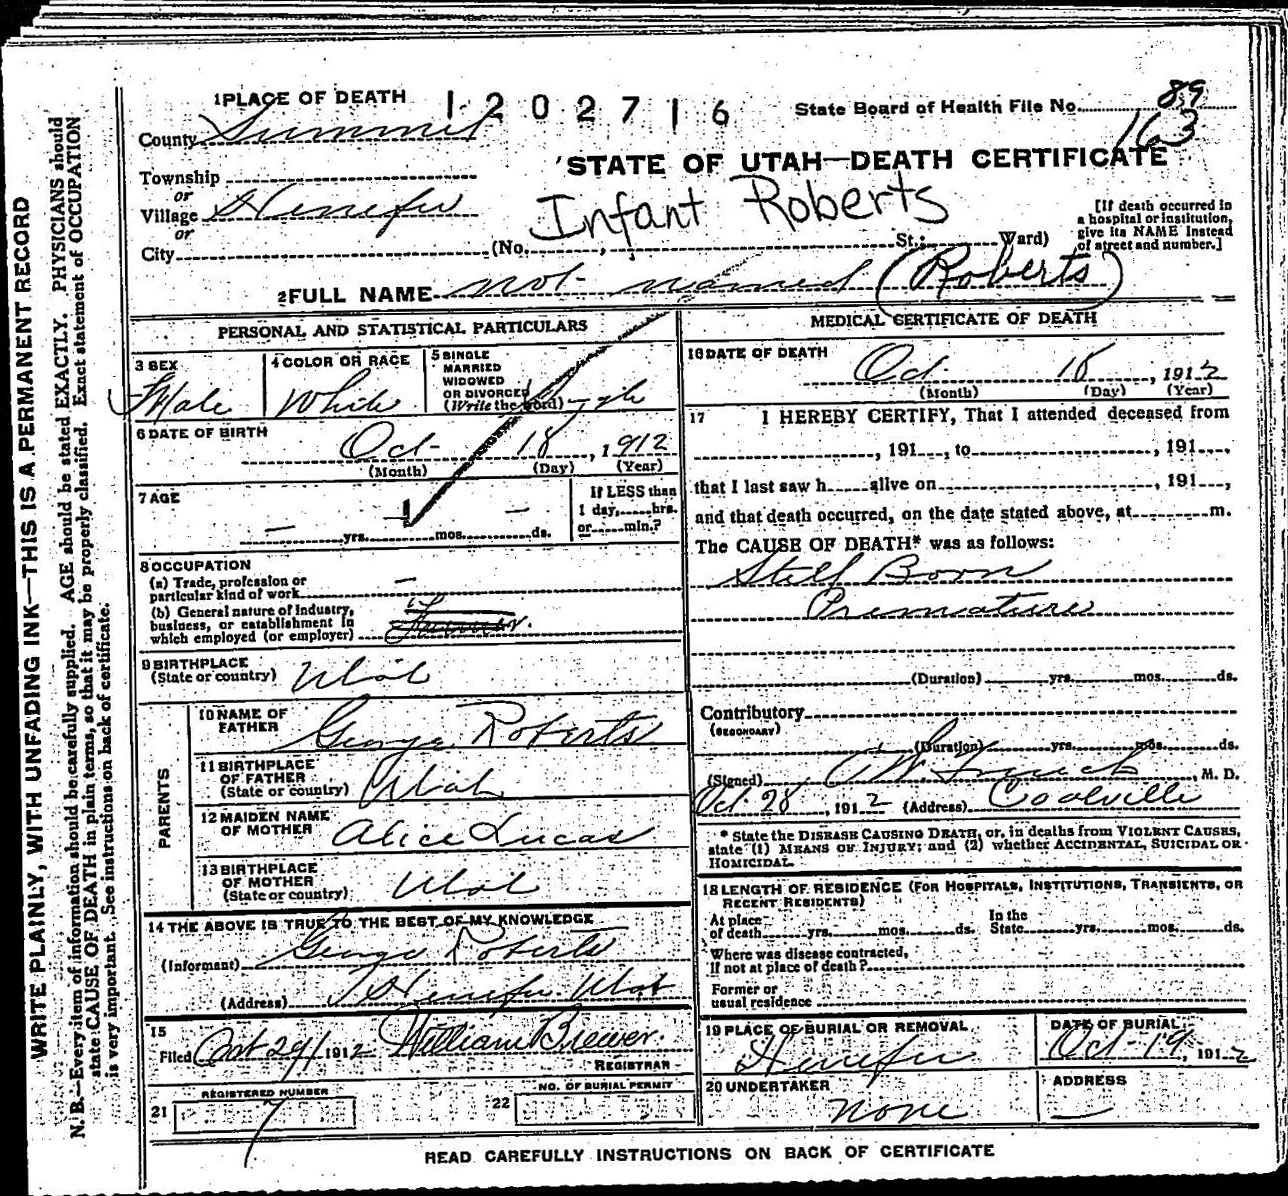 1 PLACE OF DEATH 1202716 State Board of Health File No. 89
County Summit 163
STATE OF UTAH—DEATH CERTIFICATE
Township
or
Village Henefer
or
City (No. , St.; Ward)
Infant Roberts
[If death occurred in
a hospital or institution,
give its NAME instead
of street and number.]
2 FULL NAME not named (Roberts)
PERSONAL AND STATISTICAL PARTICULARS
3 SEX
Male
4 COLOR OR RACE
White
5 SINGLE
MARRIED
WIDOWED
OR DIVORCED
(Write the word) Single
6 DATE OF BIRTH
Oct 18, 1912
(Month) (Day) (Year)
7 AGE
— yrs. — mos. — ds.
If LESS than
1 day, hrs.
or min.?
8 OCCUPATION
(a) Trade, profession or
particular kind of work —
(b) General nature of industry,
business, or establishment in
which employed (or employer)
9 BIRTHPLACE
(State or country) Utah
PARENTS
10 NAME OF
FATHER George Roberts
11 BIRTHPLACE
OF FATHER
(State or country) Utah
12 MAIDEN NAME
OF MOTHER Alice Lucas
13 BIRTHPLACE
OF MOTHER
(State or country) Utah
14 THE ABOVE IS TRUE TO THE BEST OF MY KNOWLEDGE
(Informant) George Roberts
(Address) Henefer Utah
15
Filed Oct 29, 1912 William Brewer.
REGISTRAR
REGISTERED NUMBER
21 7
NO. OF BURIAL PERMIT
22
MEDICAL CERTIFICATE OF DEATH
16 DATE OF DEATH
Oct 18, 1912
(Month) (Day) (Year)
17 I HEREBY CERTIFY, That I attended deceased from
, 191 , to , 191 ,
that I last saw h alive on , 191 ,
and that death occurred, on the date stated above, at m.
The CAUSE OF DEATH* was as follows:
Still Born
Premature
(Duration) yrs. mos. ds.
Contributory
(SECONDARY)
(Duration) yrs. mos. ds.
(Signed) , M. D.
Oct 28, 1912 (Address) Coalville
* State the DISEASE CAUSING DEATH, or, in deaths from VIOLENT CAUSES,
state (1) MEANS OF INJURY; and (2) whether ACCIDENTAL, SUICIDAL OR
HOMICIDAL.
18 LENGTH OF RESIDENCE (FOR HOSPITALS, INSTITUTIONS, TRANSIENTS, OR
RECENT RESIDENTS)
At place
of death yrs. mos. ds.
In the
State yrs. mos. ds.
Where was disease contracted,
if not at place of death?
Former or
usual residence
19 PLACE OF BURIAL OR REMOVAL
Henefer
DATE OF BURIAL
Oct 19, 1912
20 UNDERTAKER
none
ADDRESS
—
READ CAREFULLY INSTRUCTIONS ON BACK OF CERTIFICATE
WRITE PLAINLY, WITH UNFADING INK—THIS IS A PERMANENT RECORD
N. B.—Every item of information should be carefully supplied. AGE should be stated EXACTLY. PHYSICIANS should
state CAUSE OF DEATH in plain terms, so that it may be properly classified. Exact statement of OCCUPATION
is very important. See instructions on back of certificate.